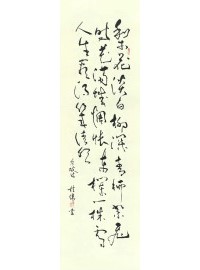 梨花淡白柳深青柳絮飛
時花滿城惆悵東欄一株雪
人生看得幾清明